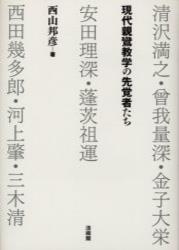 清沢満之・曾我量深・金子大栄
現代親鸞教学の先覚者たち
安田理深・蓬茨祖運
西山邦彦=著
西田幾多郎・河上肇・三木清
法藏館